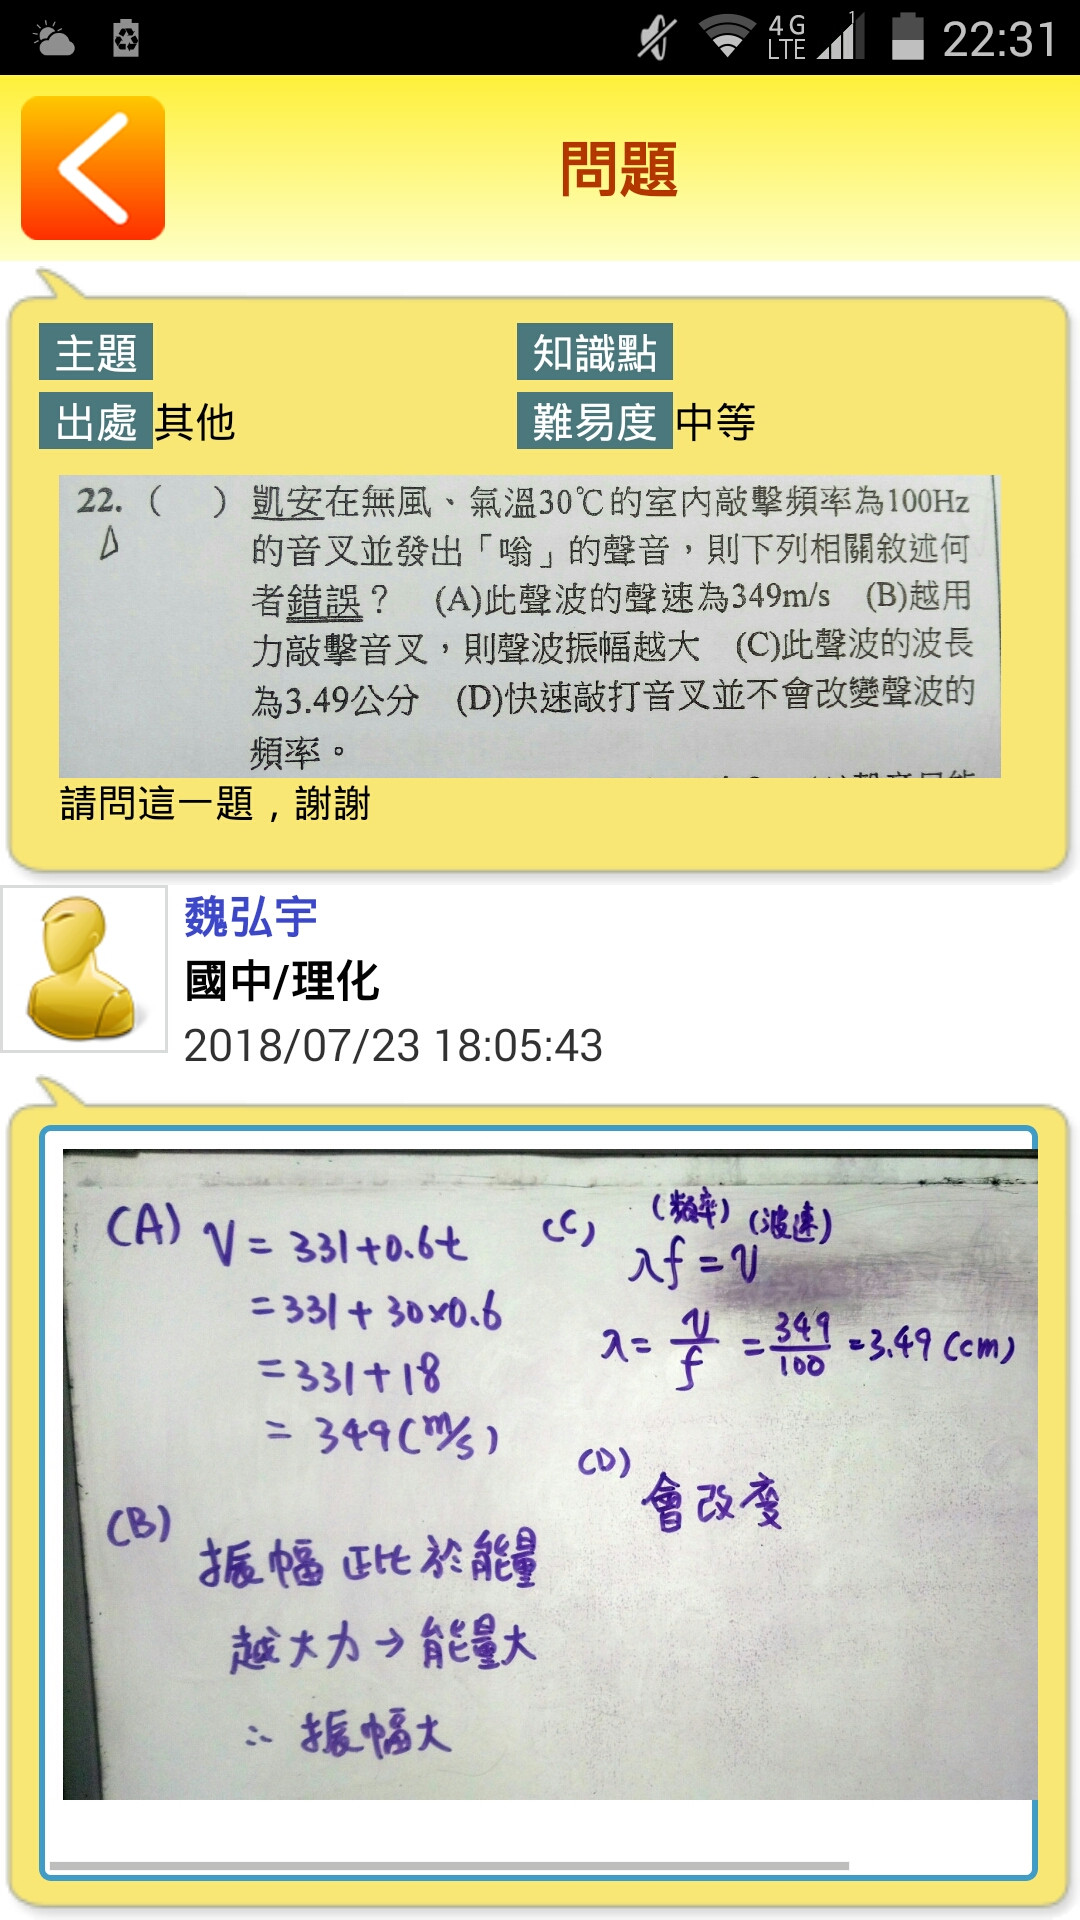 4G
LTE
1
22:31
問題
主題
知識點
出處 其他
難易度 中等
22. ( ) 凱安在無風、氣溫30℃的室內敲擊頻率為100Hz
的音叉並發出「嗡」的聲音，則下列相關敘述何
者錯誤？ (A)此聲波的聲速為349m/s (B)越用
力敲擊音叉，則聲波振幅越大 (C)此聲波的波長
為3.49公分 (D)快速敲打音叉並不會改變聲波的
頻率。
請問這一題，謝謝
魏弘宇
國中/理化
2018/07/23 18:05:43
(A) V = 331+0.6t
= 331 + 30×0.6
= 331 + 18
= 349 (m/s)
(B)
振幅 正比於能量
越大力→能量大
∴ 振幅大
(C) (頻率) (波速)
λf = V
λ = V/f = 349/100 = 3.49 (cm)
(D)
會改变